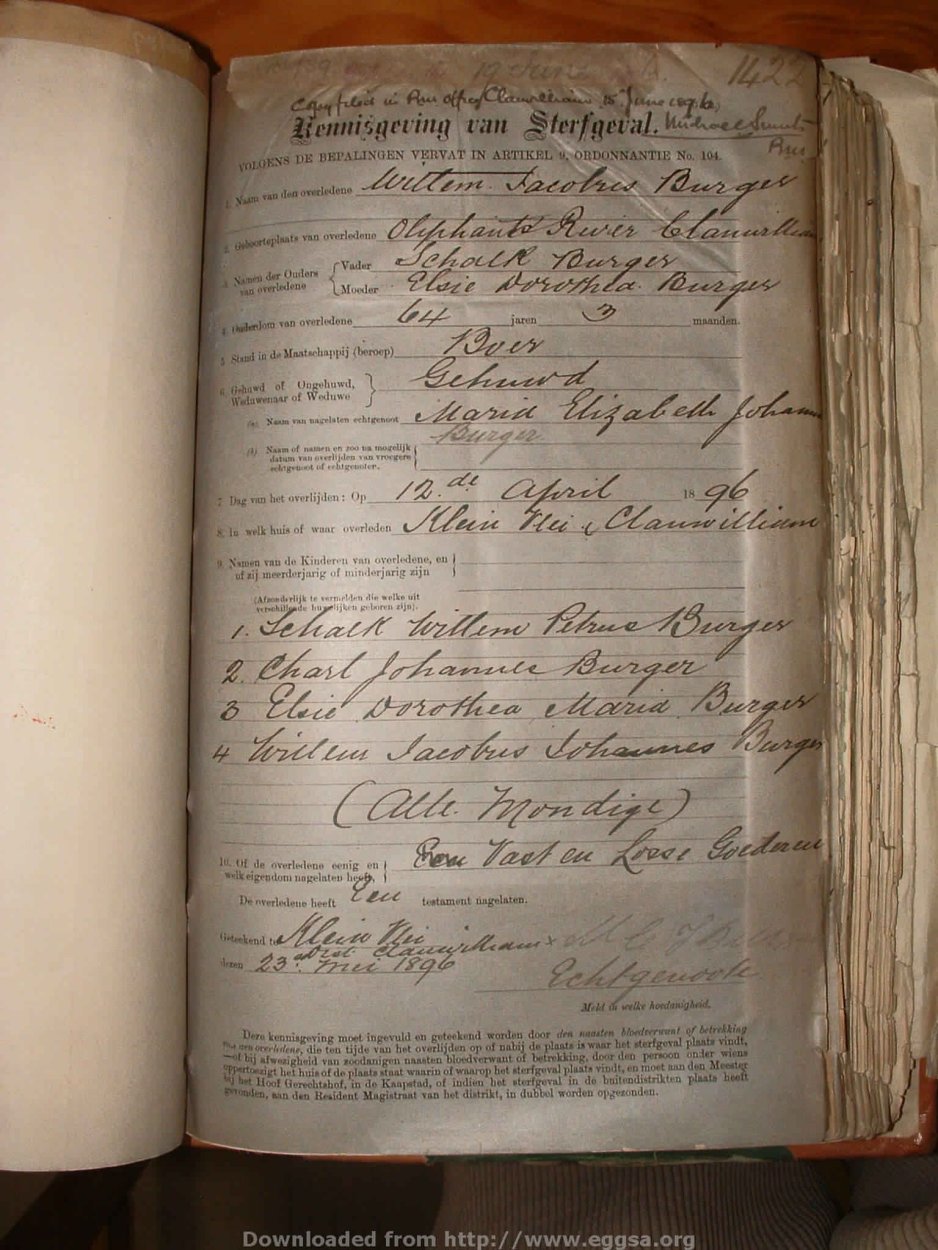 19 June 1422
Copy filed in Res. Office Clanwilliam 15 June 1896
Kennisgeving van Sterfgeval.
VOLGENS DE BEPALINGEN VERVAT IN ARTIKEL 9, ORDONNANTIE No. 104.
1. Naam van den overledene Willem Jacobus Burger
2. Geboorteplaats van overledene Oliphants River Clanwilliam
3. Namen der Ouders van overledene { Vader Schalk Burger
Moeder Elsie Dorothea Burger
4. Ouderdom van overledene 64 jaren 3 maanden.
5. Stand in de Maatschappij (beroep) Boer
6. Gehuwd of Ongehuwd, Weduwenaar of Weduwe } Gehuwd
(a) Naam van nagelaten echtgenoot Maria Elizabeth Johanna
Burger
(b) Naam of namen en zoo na mogelijk
datum van overlijden van vroegere
echtgenoot of echtgenoten.
7. Dag van het overlijden: Op 12.de April 1896
8. In welk huis of waar overleden Klein Vlei, Clanwilliam
9. Namen van de Kinderen van overledene, en
of zij meerderjarig of minderjarig zijn
(Afzonderlijk te vermelden die welke uit
verschillende huwelijken geboren zijn).
1. Schalk Willem Petrus Burger
2. Charl Johannes Burger
3 Elsie Dorothea Maria Burger
4 Willem Jacobus Johannes Burger
(Alle Mondige)
10. Of de overledene eenig en
welk eigendom nagelaten heeft, } Vast en Losse Goederen
De overledene heeft Een testament nagelaten.
Geteekend te Klein Vlei
Dist Clanwilliam
dezen 23.d Mei 1896 Echtgenoote
Meld in welke hoedanigheid.
Deze kennisgeving moet ingevuld en geteekend worden door den naasten bloedverwant of betrekking
van den overledene, die ten tijde van het overlijden op of nabij de plaats is waar het sterfgeval plaats vindt,
—of bij afwezigheid van zoodanigen naasten bloedverwant of betrekking, door den persoon onder wiens
oppertoezigt het huis of de plaats staat waarin of waarop het sterfgeval plaats vindt, en moet aan den Meester
bij het Hoof Gerechtshof, in de Kaapstad, of indien het sterfgeval in de buitendistrikten plaats heeft
gevonden, aan den Resident Magistraat van het distrikt, in dubbel worden opgezonden.
Downloaded from http://www.eggsa.org